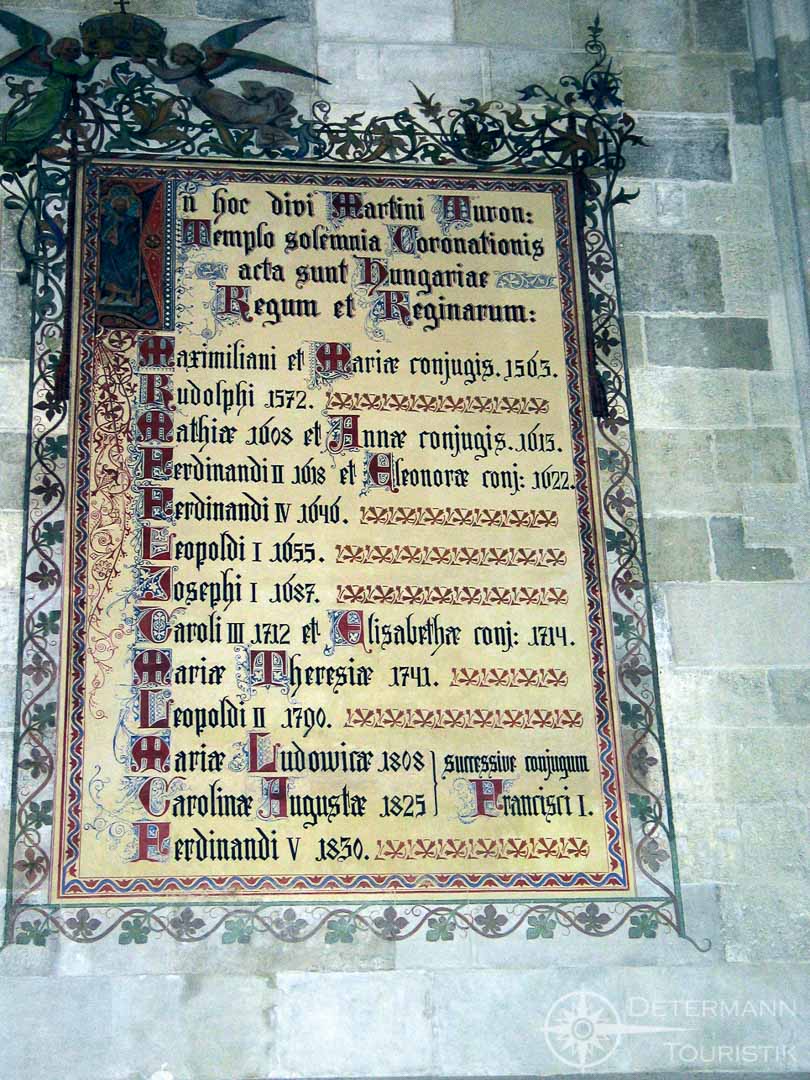 In hoc divi Martini Turon:
Templo solemnia Coronationis
acta sunt Hungariae
Regum et Reginarum:
Maximiliani et Mariæ conjugis. 1563.
Rudolphi 1572.
Mathiæ 1608 et Annæ conjugis. 1613.
Ferdinandi II 1618 et Eleonoræ conj: 1622.
Ferdinandi IV 1646.
Leopoldi I 1655.
Josephi I 1687.
Caroli III 1712 et Elisabethæ conj: 1714.
Mariæ Theresiæ 1741.
Leopoldi II 1790.
Mariæ Ludowicæ 1808 } successive conjugum
Carolinæ Augustæ 1825 } Francisci I.
Ferdinandi V 1830.
DETERMANN
TOURISTIK